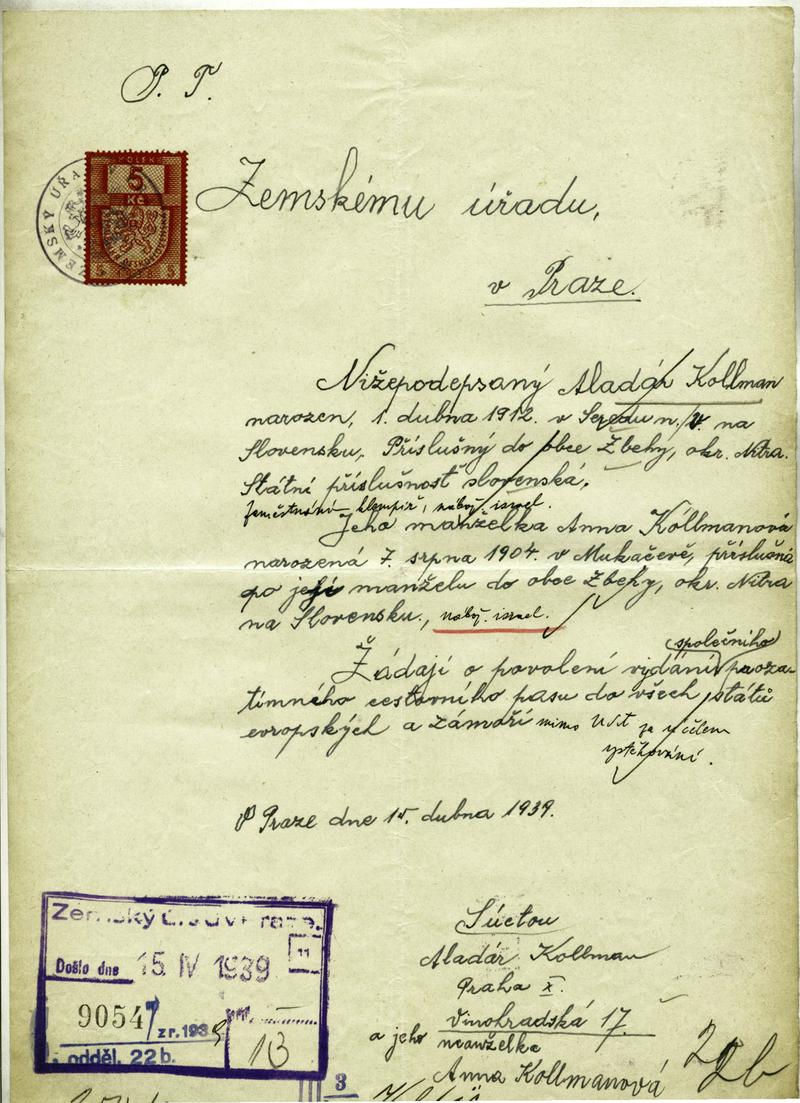 P. T.
KOLEK
5
Kč
5 5
ZEMSKÝ ÚŘA
Zemskému úřadu,
v Praze.
Nížepodepsaný Aladár Kollman
narozen, 1. dubna 1912. v Seredu n./V. na
Slovensku, Příslušný do obce Zbehy, okr. Nitra.
Státní příslušnost slovenská.
Zaměstnání klempíř, nábož. israel.
Jeho manželka Anna Kollmanová
narozená 7. srpna 1904. v Mukačevě, příslušná
po její manželu do obce Zbehy, okr. Nitra
na Slovensku., nábož. israel.
společního
Žádají o povolení vydání proza-
tímného cestovního pasu do všech států
evropských a zámoří mimo USA za účelem
vystěhování.
V Praze dne 15. dubna 1939.
Súctou
Aladár Kollman
Praha X.
Vinohradská 17.
a jeho manželka
Anna Kollmanová
22b
Zemský úřad v Praze.
Došlo dne 15 IV 1939
11
9054 / z r. 1939
13
odděl. 22 b.
3